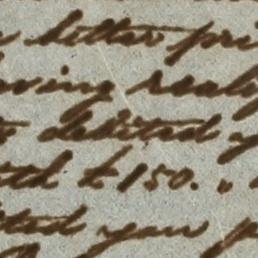 better pri
ving real
debited y
th £150. „
ted your p